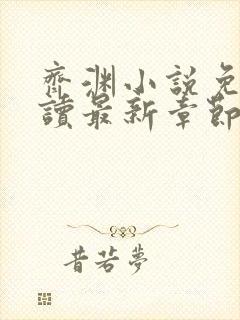 齊渊小說免
讀最新章節
昔若夢